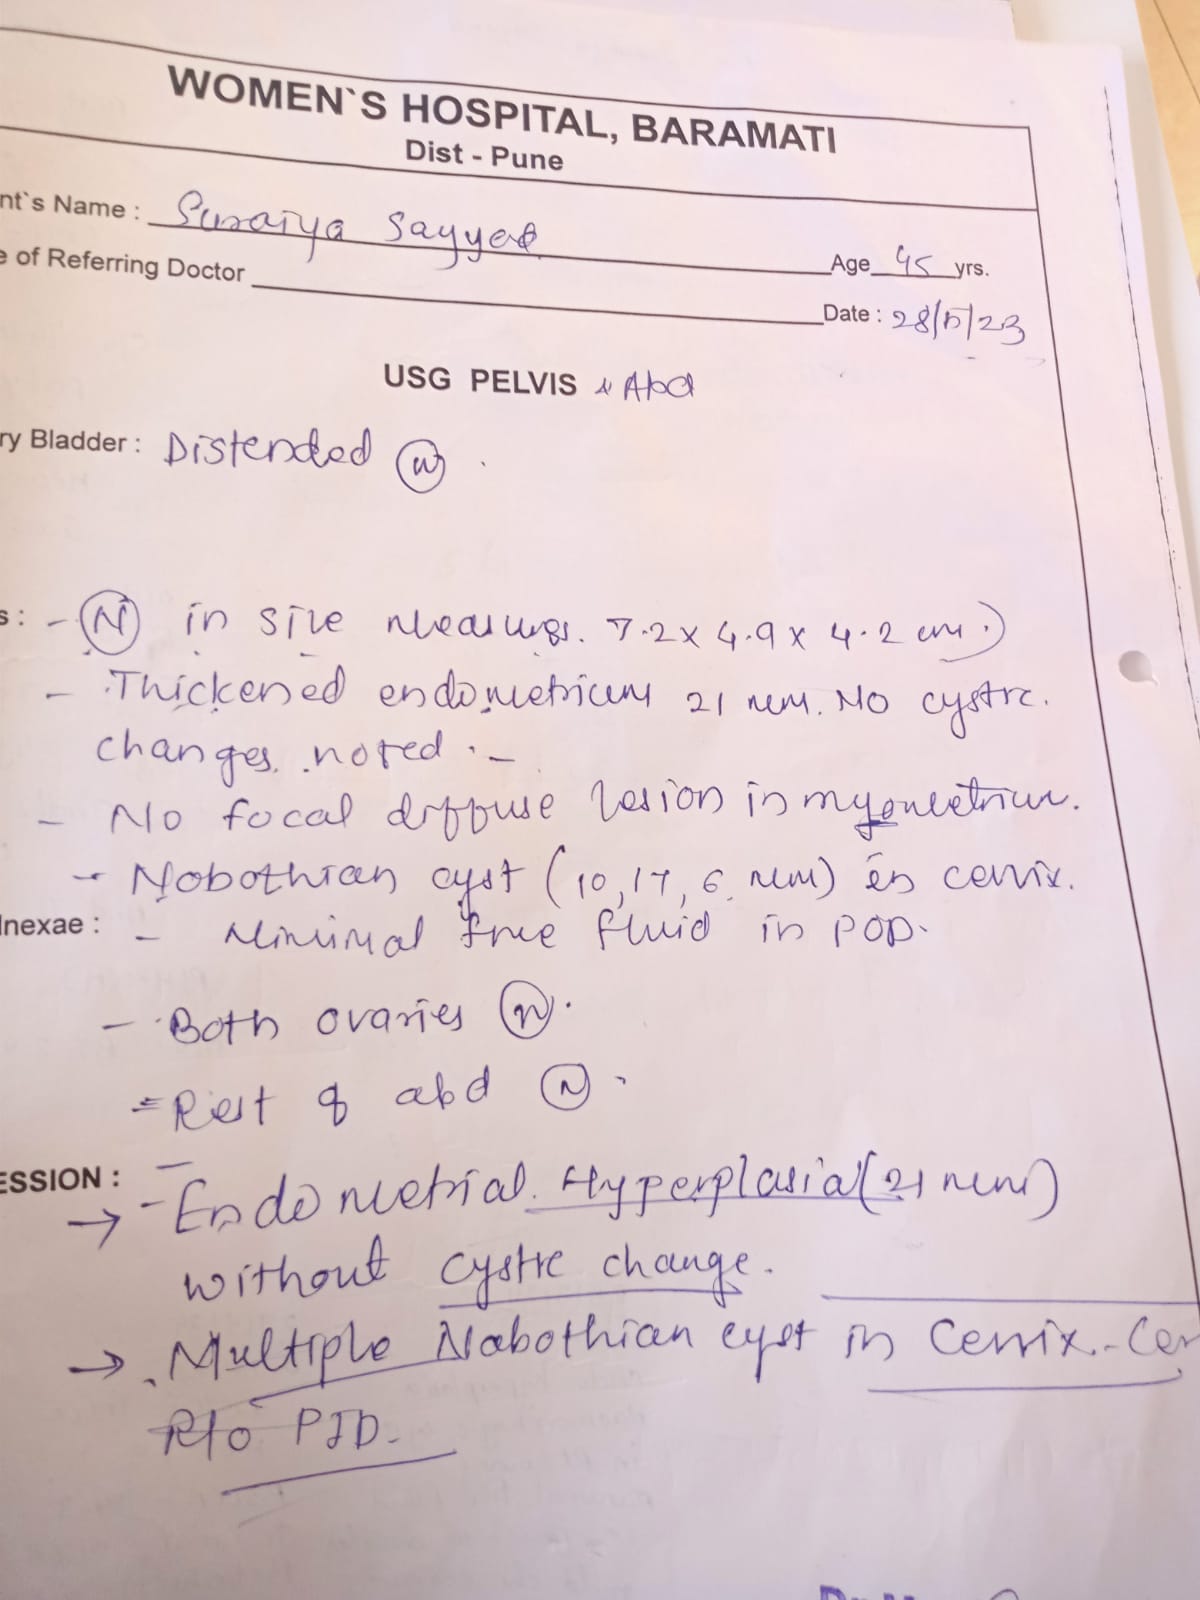 WOMEN`S HOSPITAL, BARAMATI
Dist - Pune
nt`s Name : Suraiya Sayyed
Age 45 yrs.
e of Referring Doctor
Date : 28/5/23
USG PELVIS & Abd
ry Bladder : Distended (N) .
s : - (N) in size measures. 7.2 x 4.9 x 4.2 cm.)
- Thickened endometrium 21 mm. No cystic
changes noted . -
- No focal diffuse lesion in myometrium.
- Nobothian cyst (10, 17, 6 mm) in cervix.
dnexae : - Minimal free fluid in POD.
- Both ovaries (N).
= Rest of abd (N).
ESSION :
→ - Endometrial Hyperplasia (21 mm)
without cystic change.
→ Multiple Nabothian cyst in Cervix.- Cer
R/o PID.